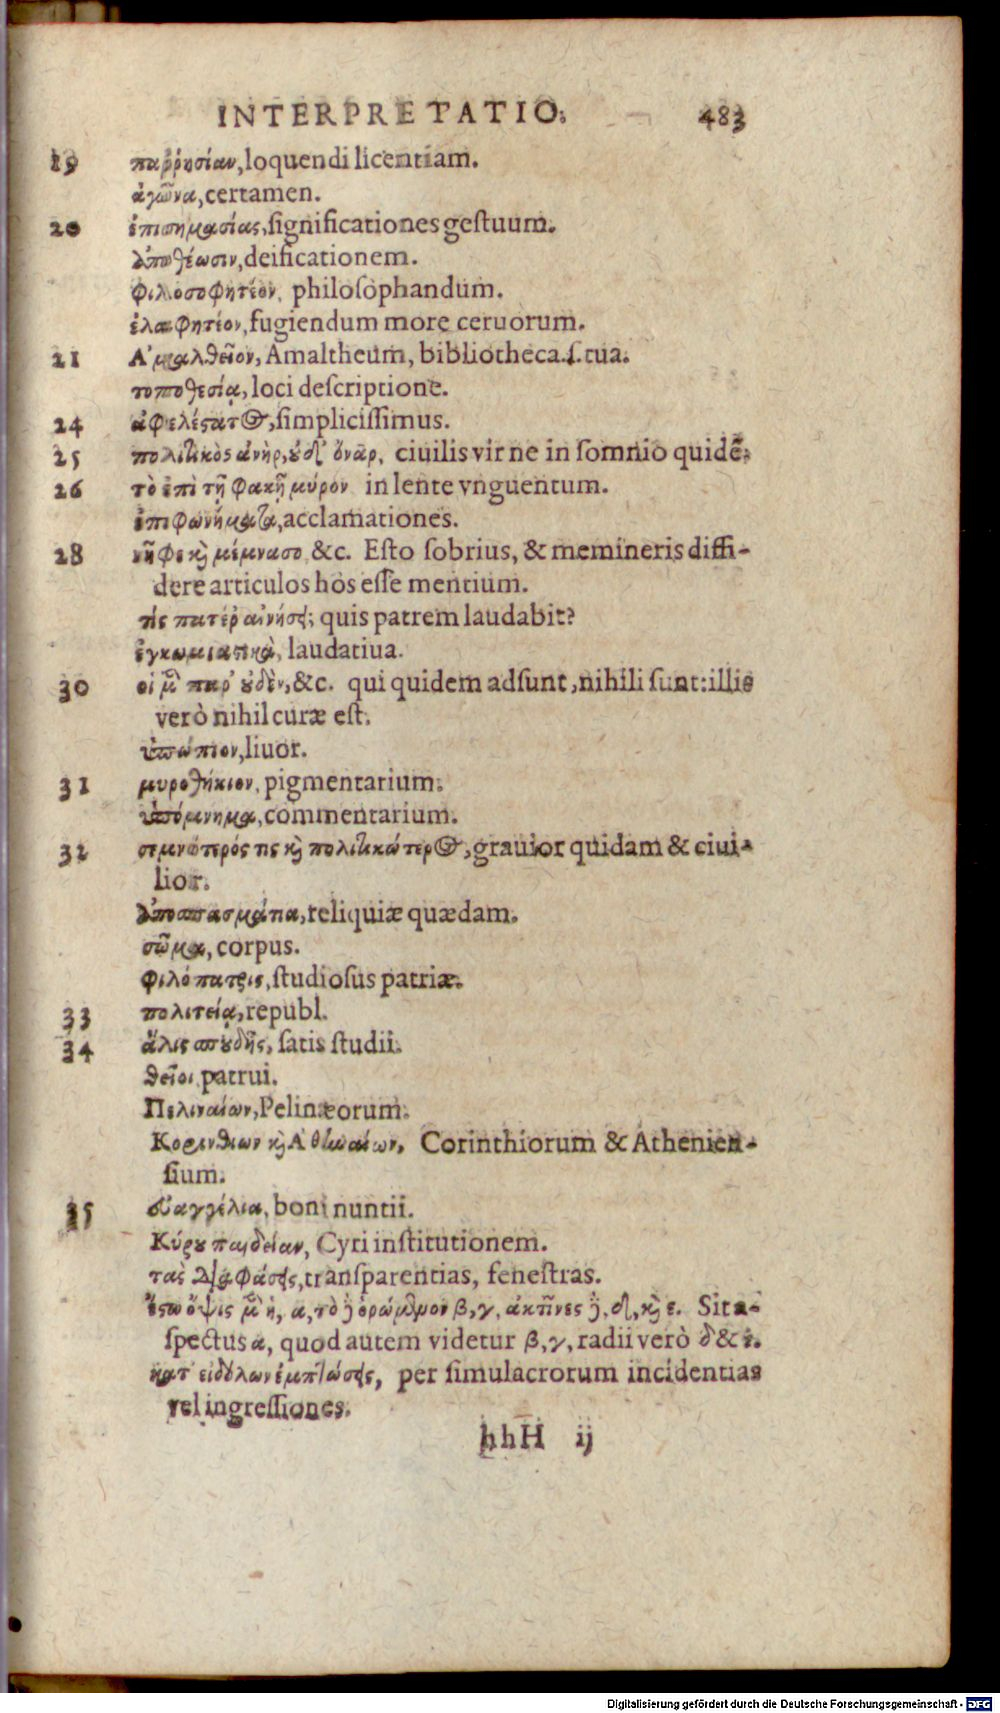 INTERPRETATIO. 483
19 παῤῥησίαν, loquendi licentiam.
ἀγῶνα, certamen.
20 ἐπισημασίας, significationes gestuum.
ἀποθέωσιν, deificationem.
φιλοσοφητέον, philosophandum.
ἐλαφητέον, fugiendum more ceruorum.
21 Ἀμαλθεῖον, Amaltheum, bibliotheca .ſ. tua.
τοποθεσίᾳ, loci descriptione.
24 ἀφελέςατος, simplicissimus.
25 πολιτικὸς ἀνὴρ, οὐδ' ὄναρ, ciuilis vir ne in somnio quidẽ.
26 τὸ ἐπὶ τῇ φακῇ μύρον in lente vnguentum.
ἐπιφωνήματα, acclamationes.
28 νῆφε καὶ μέμνασο, &c. Esto sobrius, & memineris diffi-
dere articulos hos esse mentium.
τίς πατέρ' αἰνήσει; quis patrem laudabit?
ἐγκωμιαστικὰ, laudatiua.
30 οἱ μὲν παρ' οὐδὲν, &c. qui quidem adsunt, nihili sunt: illis
verò nihil curæ est.
ὑπώπιον, liuor.
31 μυροθήκιον, pigmentarium.
ὑπόμνημα, commentarium.
32 σεμνότερός τις καὶ πολιτικώτερος, grauior quidam & ciui-
lior.
ἀποσπασμάτια, reliquiæ quædam.
σῶμα, corpus.
φιλόπατρις, studiosus patriæ.
33 πολιτείᾳ, republ.
34 ἅλις σπουδῆς, satis studii.
θεῖοι, patrui.
Πελιναίων, Pelinæorum.
Κορινθίων καὶ Ἀθηναίων, Corinthiorum & Athenien-
sium.
35 εὐαγγέλια, boni nuntii.
Κύρου παιδείαν, Cyri institutionem.
τὰς διαφάσεις, transparentias, fenestras.
ἔςω ὄψις μὲν ἡ, α, τὸ δὲ ὁρώμενον β, γ, ἀκτῖνες δὲ, δ, καὶ ε. Sit a-
spectus α, quod autem videtur β, γ, radii verò δ & ε.
κατ' εἰδώλων ἐμπτώσεις, per simulacrorum incidentias
vel ingressiones.
hhH ij
Digitalisierung gefördert durch die Deutsche Forschungsgemeinschaft - DFG